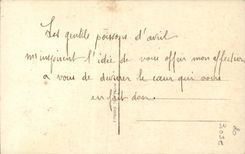 Les gentils poissons d'avril
m'inspirent l'idée de vous offrir mon affection
à vous de deviner le cœur qui vous
en fait don.